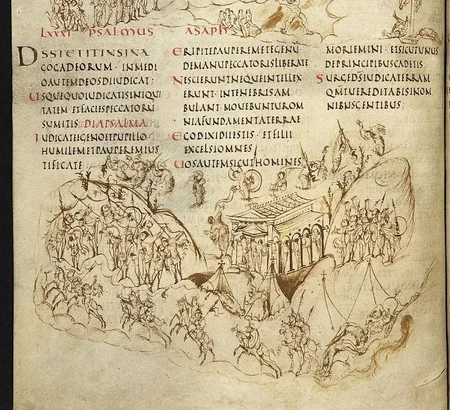 LXXXI PSALMUS ASAPH
DSSTETITINSINA
COCADEORUM · INMEDI
OAUTEMDEOSDIIUDICAT·
USQUEQUOIUDICATISINIQUI
TATEM ETFACIESPECCATORU
SUMITIS DIAPSALMA
IUDICATEEGENOETPUPILLO
HUMILEMETPAUPEREMIUS
TIFICATE
ERIPITEPAUPEREMETEGENU
DEMANUPECCATORISLIBERATE
NESCIERUNTNEQUEINTELLEX
ERUNT · INTENEBRISAM
BULANT MOVEBUNTUROM
NIAFUNDAMENTATERRAE
EGODIXIDIIESTIS · ETFILII
EXCELSIOMNES
UOSAUTEMSICUTHOMINES
MORIEMINI · ETSICUTUNUS
DEPRINCIPIBUSCADETIS
SURGEDSIUDICATERRAM
NIBUSGENTIBUS